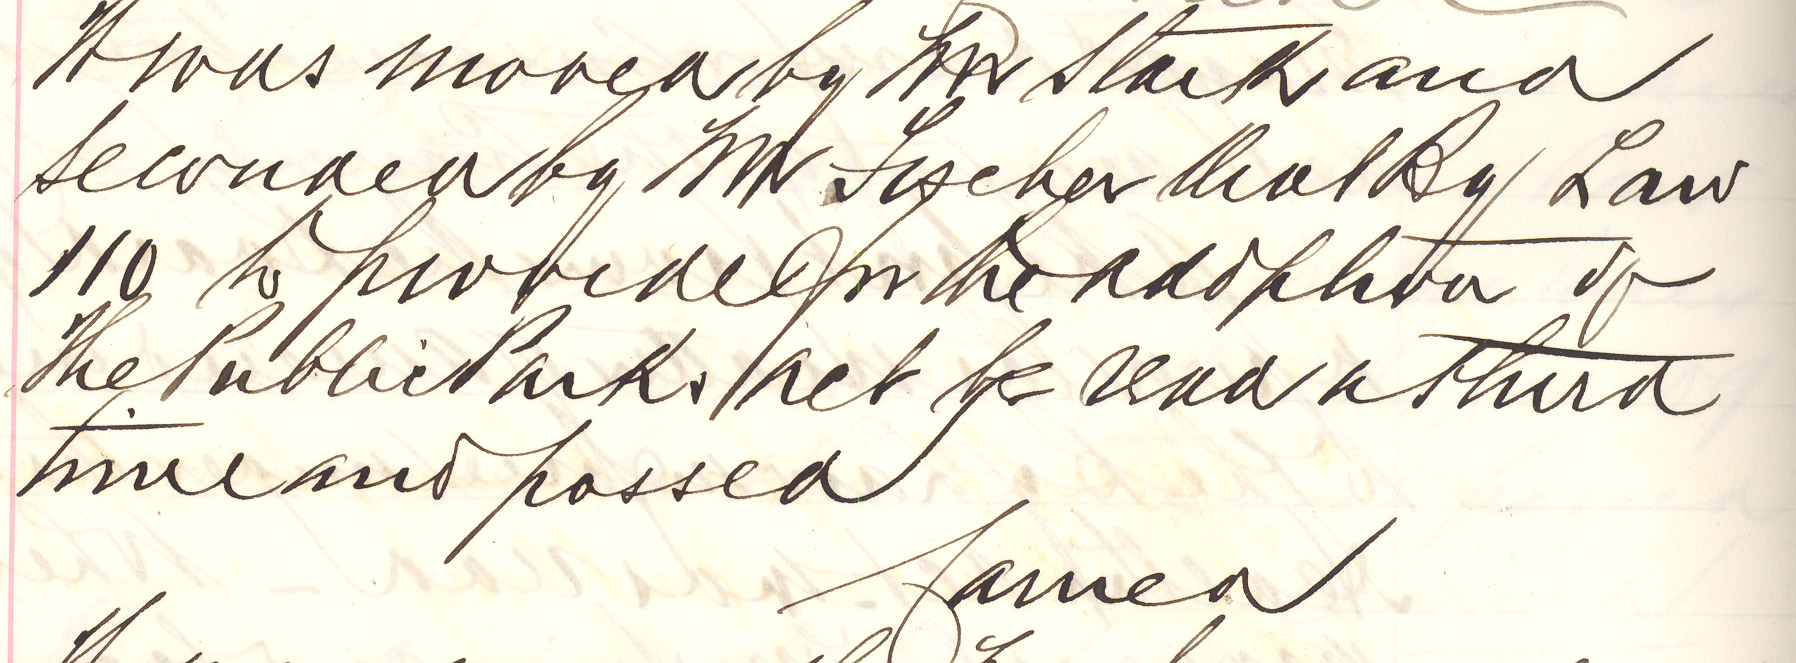 It was moved by Mr Stark and
seconded by Mr Fischer that By Law
110 to provide for the adoption of
the Public Parks Act be read a third
time and passed
Carried